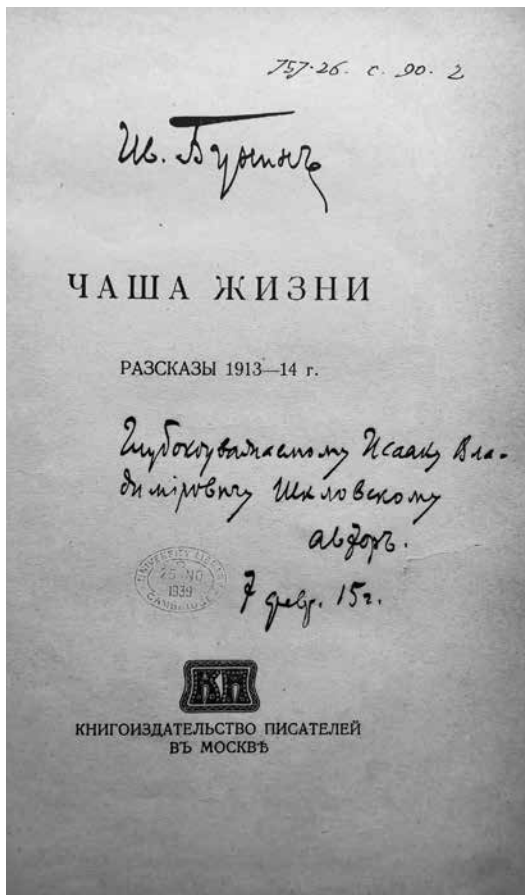 757·26. c. 90. 2
Ив. Бунинъ
ЧАША ЖИЗНИ
РАЗСКАЗЫ 1913—14 г.
Глубокоуважаемому Исааку Вла-
диміровичу Шкловскому
авторъ.
7 февр. 15 г.
UNIVERSITY LIBRARY
25 NO
1939
CAMBRIDGE
КП
КНИГОИЗДАТЕЛЬСТВО ПИСАТЕЛЕЙ
ВЪ МОСКВѢ